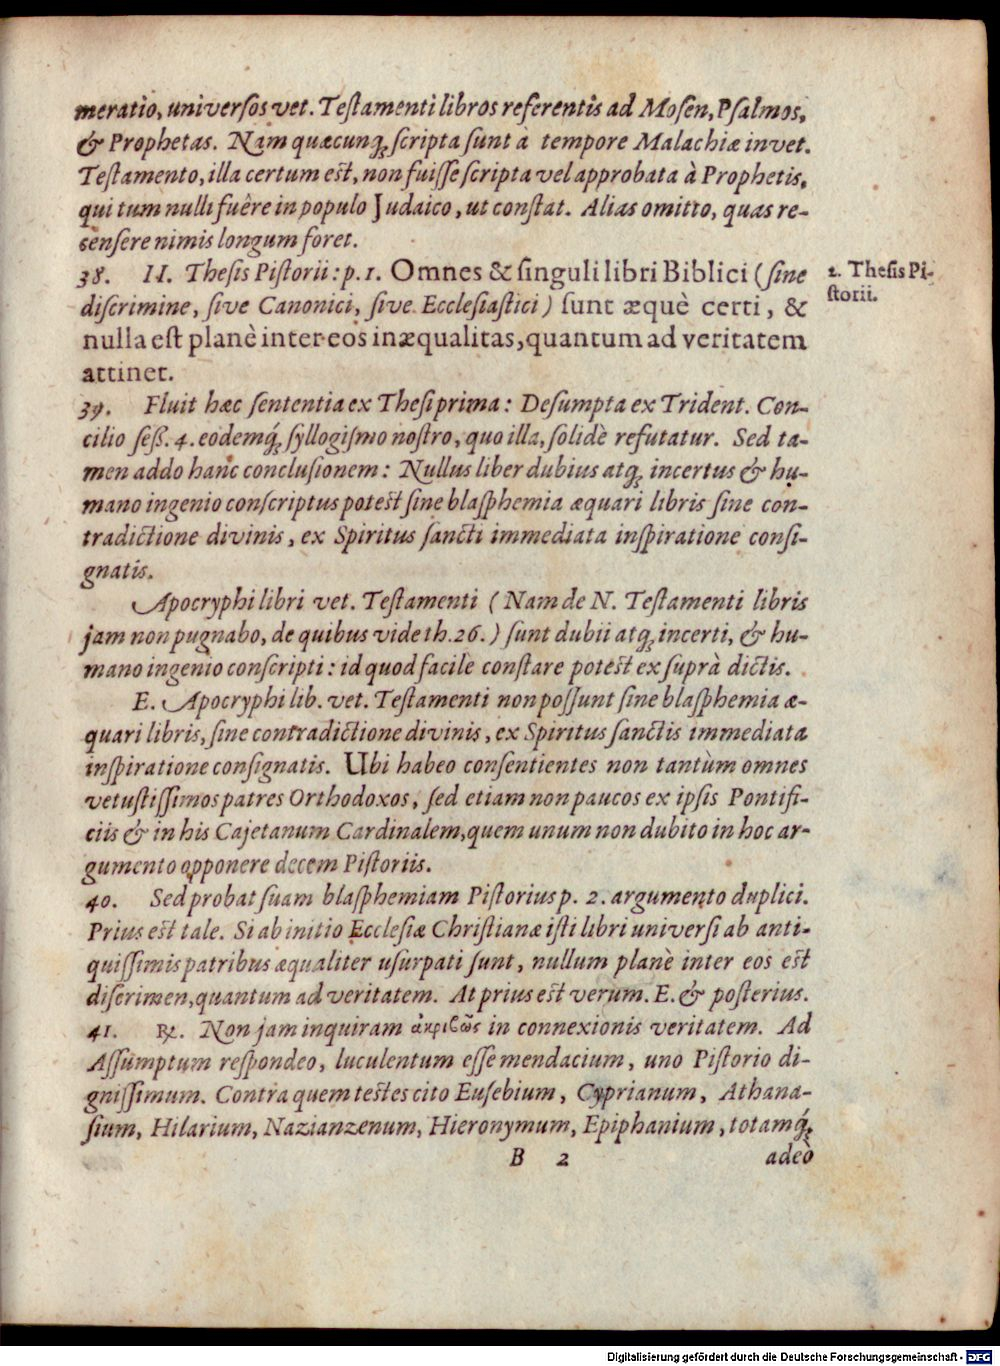 meratio, universos vet. Testamenti libros referentis ad Mosen, Psalmos,
& Prophetas. Nam quæcunq; scripta sunt à tempore Malachiæ in vet.
Testamento, illa certum est, non fuisse scripta vel approbata à Prophetis,
qui tum nulli fuêre in populo Judaico, ut constat. Alias omitto, quas re-
censere nimis longum foret.
38. II. Thesis Pistorii: p. 1. Omnes & singuli libri Biblici (sine
discrimine, sive Canonici, sive Ecclesiastici) sunt æquè certi, &
nulla est planè inter eos inæqualitas, quantum ad veritatem
attinet.
2. Thesis Pi-
storii.
39. Fluit hæc sententia ex Thesi prima: Desumpta ex Trident. Con-
cilio seß. 4. eodemq́; syllogismo nostro, quo illa, solidè refutatur. Sed ta-
men addo hanc conclusionem: Nullus liber dubius atq; incertus & hu-
mano ingenio conscriptus potest sine blasphemia æquari libris sine con-
tradictione divinis, ex Spiritus sancti immediata inspiratione consi-
gnatis.
Apocryphi libri vet. Testamenti (Nam de N. Testamenti libris
jam non pugnabo, de quibus vide th. 26.) sunt dubii atq; incerti, & hu-
mano ingenio conscripti: id quod facilè constare potest ex suprà dictis.
E. Apocryphi lib. vet. Testamenti non possunt sine blasphemia æ-
quari libris, sine contradictione divinis, ex Spiritus sanctis immediata
inspiratione consignatis. Ubi habeo consentientes non tantùm omnes
vetustissimos patres Orthodoxos, sed etiam non paucos ex ipsis Pontifi-
ciis & in his Cajetanum Cardinalem, quem unum non dubito in hoc ar-
gumento opponere decem Pistoriis.
40. Sed probat suam blasphemiam Pistorius p. 2. argumento duplici.
Prius est tale. Si ab initio Ecclesiæ Christianæ isti libri universi ab anti-
quissimis patribus æqualiter usurpati sunt, nullum planè inter eos est
discrimen, quantum ad veritatem. At prius est verum. E. & posterius.
41. ℞. Non jam inquiram ἀκριβῶς in connexionis veritatem. Ad
Assumptum respondeo, luculentum esse mendacium, uno Pistorio di-
gnissimum. Contra quem testes cito Eusebium, Cyprianum, Athana-
sium, Hilarium, Nazianzenum, Hieronymum, Epiphanium, totamq́;
B 2 adeò
Digitalisierung gefördert durch die Deutsche Forschungsgemeinschaft - DFG